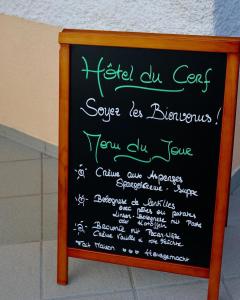 Hôtel du Cerf
Soyez les Bienvenus!
Menu du Jour
Crème aux Asperges
Spargelcreme - Suppe
Bolognese de lentilles
avec pâtes ou patates
Linsen-Bolognese mit Pasta
oder Kartoffeln
Brownie mit
Crème Vanille &
Fait Maison #Hausgemacht